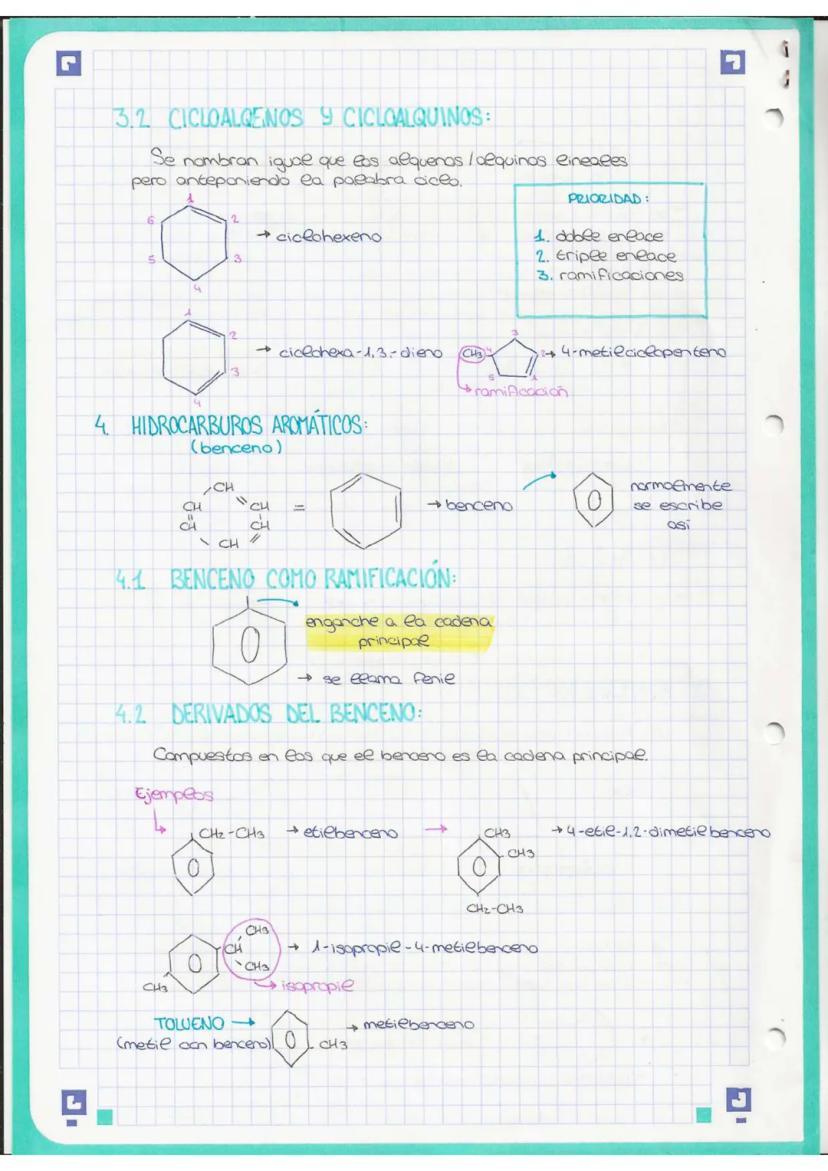 3.2 CICLOALQENOS Y CICLOALQUINOS:
Se nombran igual que los alquenos/alquinos lineales
pero anteponiendo la palabra ciclo.
PRIORIDAD:
1. doble enlace
2. triple enlace
3. ramificaciones
1
6 2
→ ciclohexeno
5 3
4
1
2
3
4
→ ciclohexa-1,3,-dieno
3
CH3 4 2 → 4-metilciclopenteno
5 1
ramificación
4. HIDROCARBUROS AROMÁTICOS:
(benceno)
CH
CH CH
CH CH
CH
= → benceno
normalmente
se escribe
así
4.1 BENCENO COMO RAMIFICACIÓN:
enganche a la cadena
principal
→ se llama fenil
4.2 DERIVADOS DEL BENCENO:
Compuestos en los que el benceno es la cadena principal.
Ejemplos
CH2-CH3 → etilbenceno →
CH3 → 4-etil-1,2-dimetilbenceno
CH3
CH2-CH3
CH3
CH → 1-isopropil-4-metilbenceno
CH3
CH3 → isopropil
TOLUENO → → metilbenceno
(metil con benceno) CH3